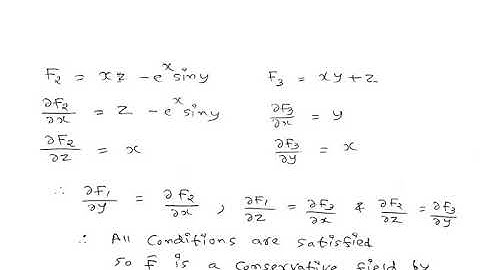 F₂ = xz - eˣ siny F₃ = xy + z
∂F₂/∂x = z - eˣ siny ∂F₃/∂x = y
∂F₂/∂z = x ∂F₃/∂y = x
∴ ∂F₁/∂y = ∂F₂/∂x , ∂F₁/∂z = ∂F₃/∂x & ∂F₂/∂z = ∂F₃/∂y
∴ All conditions are satisfied
So F̄ is a conservative field by